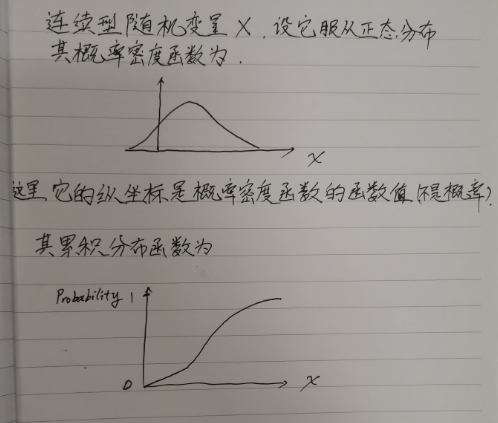 连续型随机变量 X，设它服从正态分布
其概率密度函数为.
X
这里它的纵坐标是概率密度函数的函数值(不是概率)
其累积分布函数为
Probability 1
0 X